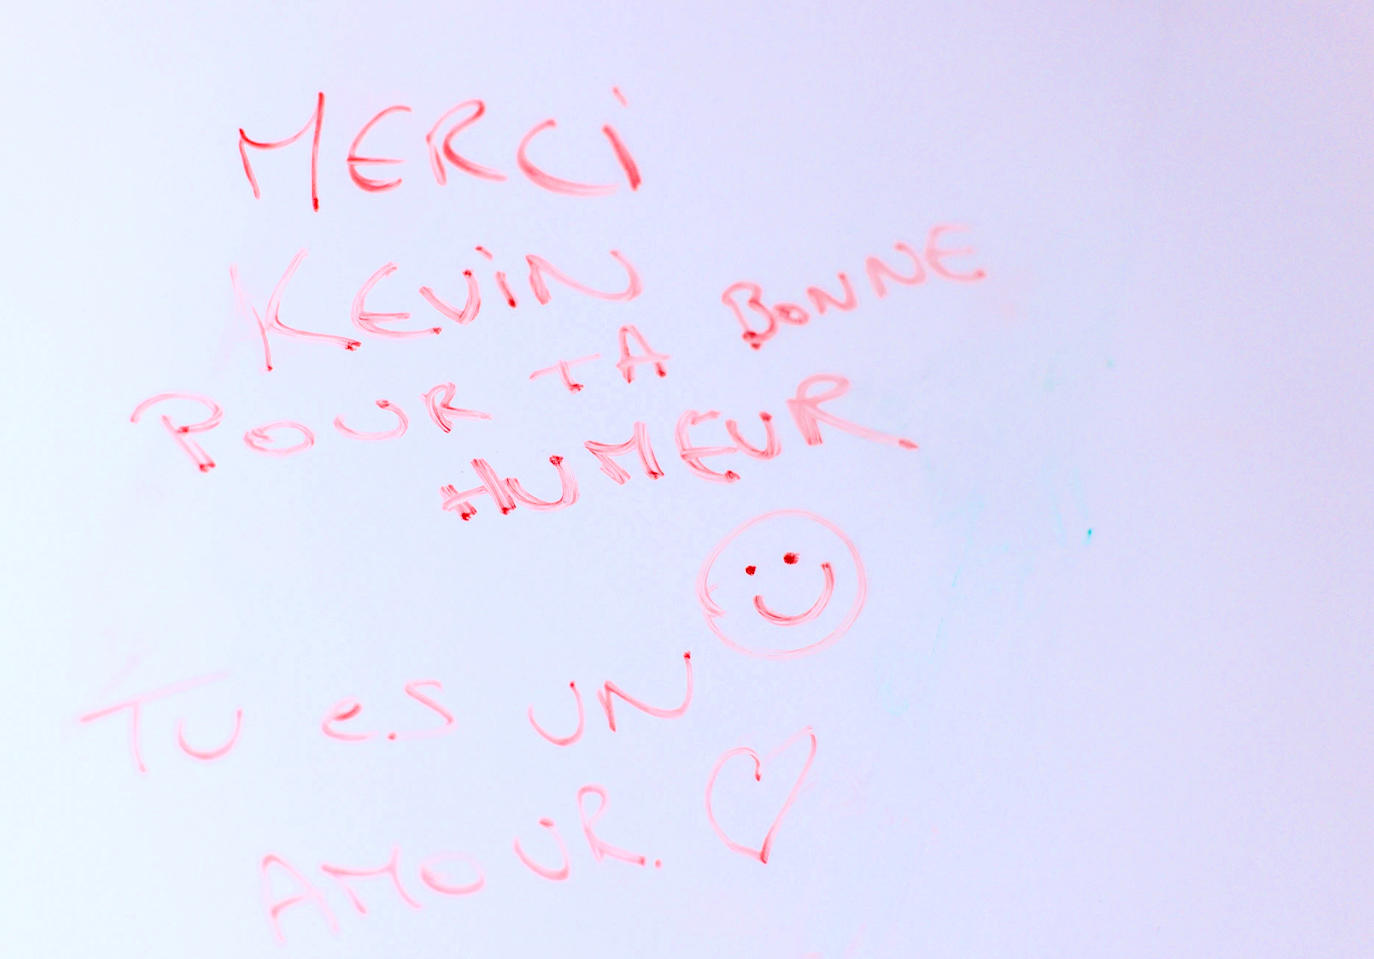 MERCi
KEViN
POUR TA BONNE
HUMEUR
TU es UN
AMOUR.